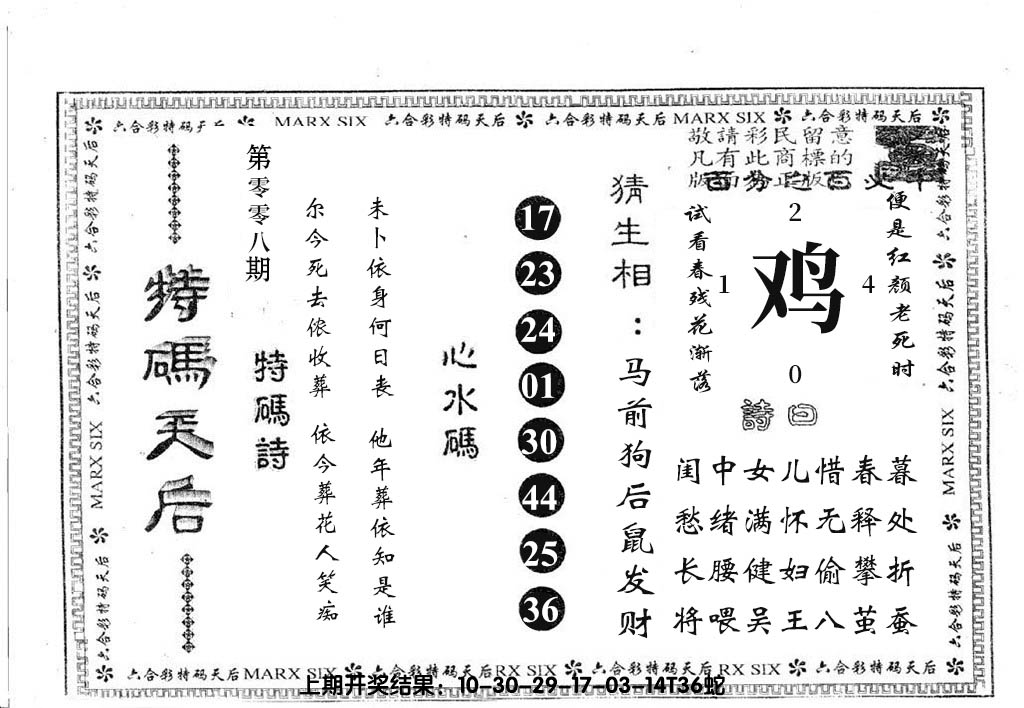 六合彩特码天后 MARX SIX 六合彩特码天后 六合彩特码天后 MARX SIX 六合彩特码天后
敬請彩民留意
凡有此商標的
版面為正版
百分之百
便是红颜老死时
试看春残花渐落
2
1
鸡
4
0
詩曰
闺中女儿惜春暮
愁绪满怀无释处
长腰健妇偷攀折
将喂吴王八茧蚕
猜生相：马前狗后鼠发财
17
23
24
01
30
44
25
36
心水碼
未卜依身何日丧 他年葬依知是谁
尔今死去侬收葬 依今葬花人笑痴
第零零八期
特碼詩
特碼天后
六合彩特码天后 六合彩特码天后 MARX SIX 六合彩特码天后
六合彩特码天后 六合彩特码天后 MARX SIX 六合彩特码天后
六合彩特码天后 MARX SIX 六合彩特码天后 RX SIX 六合彩特码天后 RX SIX 六合彩特码天后
上期开奖结果：10-30-29-17-03-14T36蛇